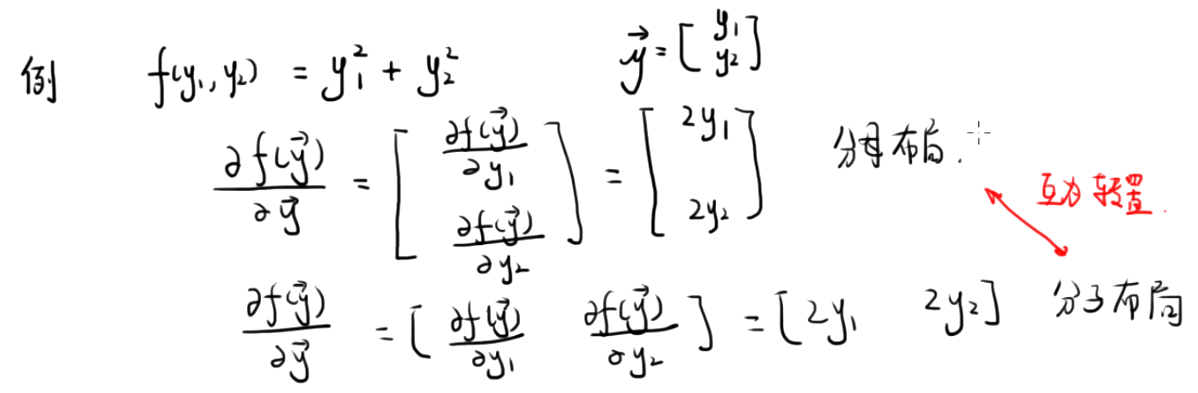 例 f(y₁, y₂) = y₁² + y₂² \vec{y} = \begin{bmatrix} y₁ \\ y₂ \end{bmatrix}
\frac{∂f(\vec{y})}{∂\vec{y}} = \begin{bmatrix} \frac{∂f(\vec{y})}{∂y₁} \\ \frac{∂f(\vec{y})}{∂y₂} \end{bmatrix} = \begin{bmatrix} 2y₁ \\ 2y₂ \end{bmatrix} 分母布局.
互为转置.
\frac{∂f(\vec{y})}{∂\vec{y}} = \begin{bmatrix} \frac{∂f(\vec{y})}{∂y₁} & \frac{∂f(\vec{y})}{∂y₂} \end{bmatrix} = [2y₁ 2y₂] 分子布局